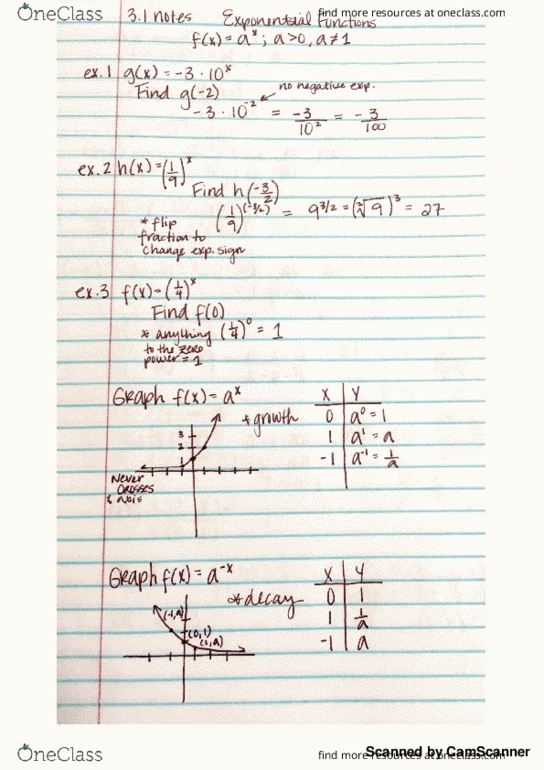 OneClass
find more resources at oneclass.com
3.1 notes Exponential Functions
f(x) = a^x ; a>0, a≠1
ex.1 g(x) = -3 · 10^x
Find g(-2)
no negative exp.
-3 · 10^-2 = -3/10^2 = -3/100
ex.2 h(x) = (1/9)^x
Find h(-3/2)
(1/9)^(-3/2) = 9^3/2 = (²√9)^3 = 27
* flip
fraction to
change exp. sign
ex.3 f(x) = (1/4)^x
Find f(0)
* anything (1/4)^0 = 1
to the zero
power = 1
Graph f(x) = a^x
* growth
X | Y
0 | a^0 = 1
1 | a^1 = a
-1 | a^-1 = 1/a
3
2
1
Never
crosses
x axis
Graph f(x) = a^-x
* decay
X | Y
0 | 1
1 | 1/a
-1 | a
(-1,a)
(0,1)
(1,a)
OneClass
find more resources at oneclass.com
Scanned by CamScanner